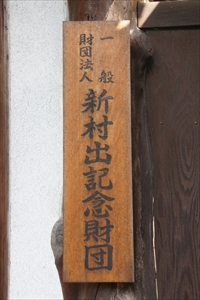 一般
財団法人
新村出記念財団